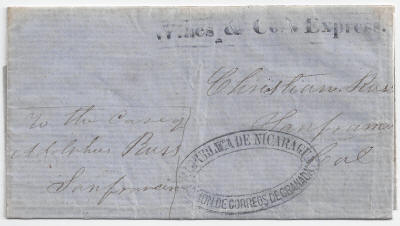 Wines & Co's Express.
Christian Russ
San francisco
Cal
To the Care of
Adolphus Russ
San francisco
REPUBLICA DE NICARAGUA
ADMON DE CORREOS DE GRANADA